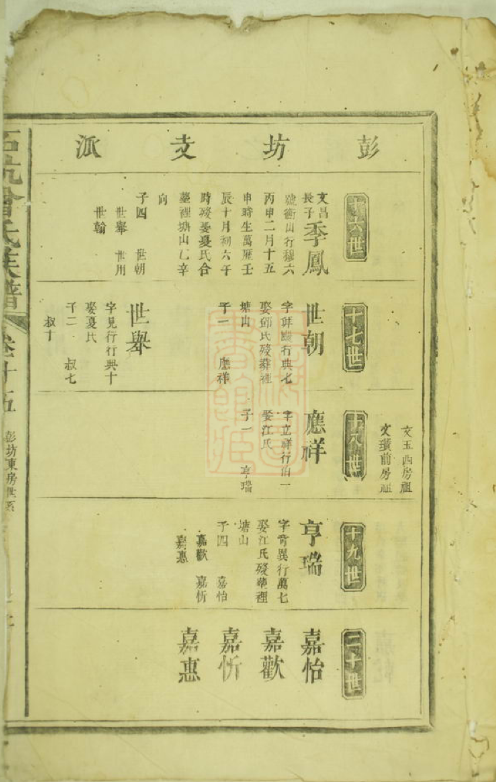 彭坊支派
文玉西房祖
文瓚前房祖
十六世
文昌
長子
季鳳
號衛山行穆六
丙申二月十五
申時生萬曆壬
辰十月初六午
時歿娶憂氏合
墓裡塘山乙辛
向
子四 世朝
世舉 世用
世翰
十七世
世朝
娶鄧氏歿葬裡
塘山
子一 應祥
世舉
字見行行典十
娶憂氏
子二 叔七
叔十
十八世
應祥
娶江氏
子一 亨瑞
十九世
亨瑞
字 異行萬七
娶江氏歿葬裡
塘山
子四 嘉怡
嘉歡 嘉忻
嘉惠
二十世
嘉怡
嘉歡
嘉忻
嘉惠
石坑曾氏族譜
卷十五
彭坊東房世系